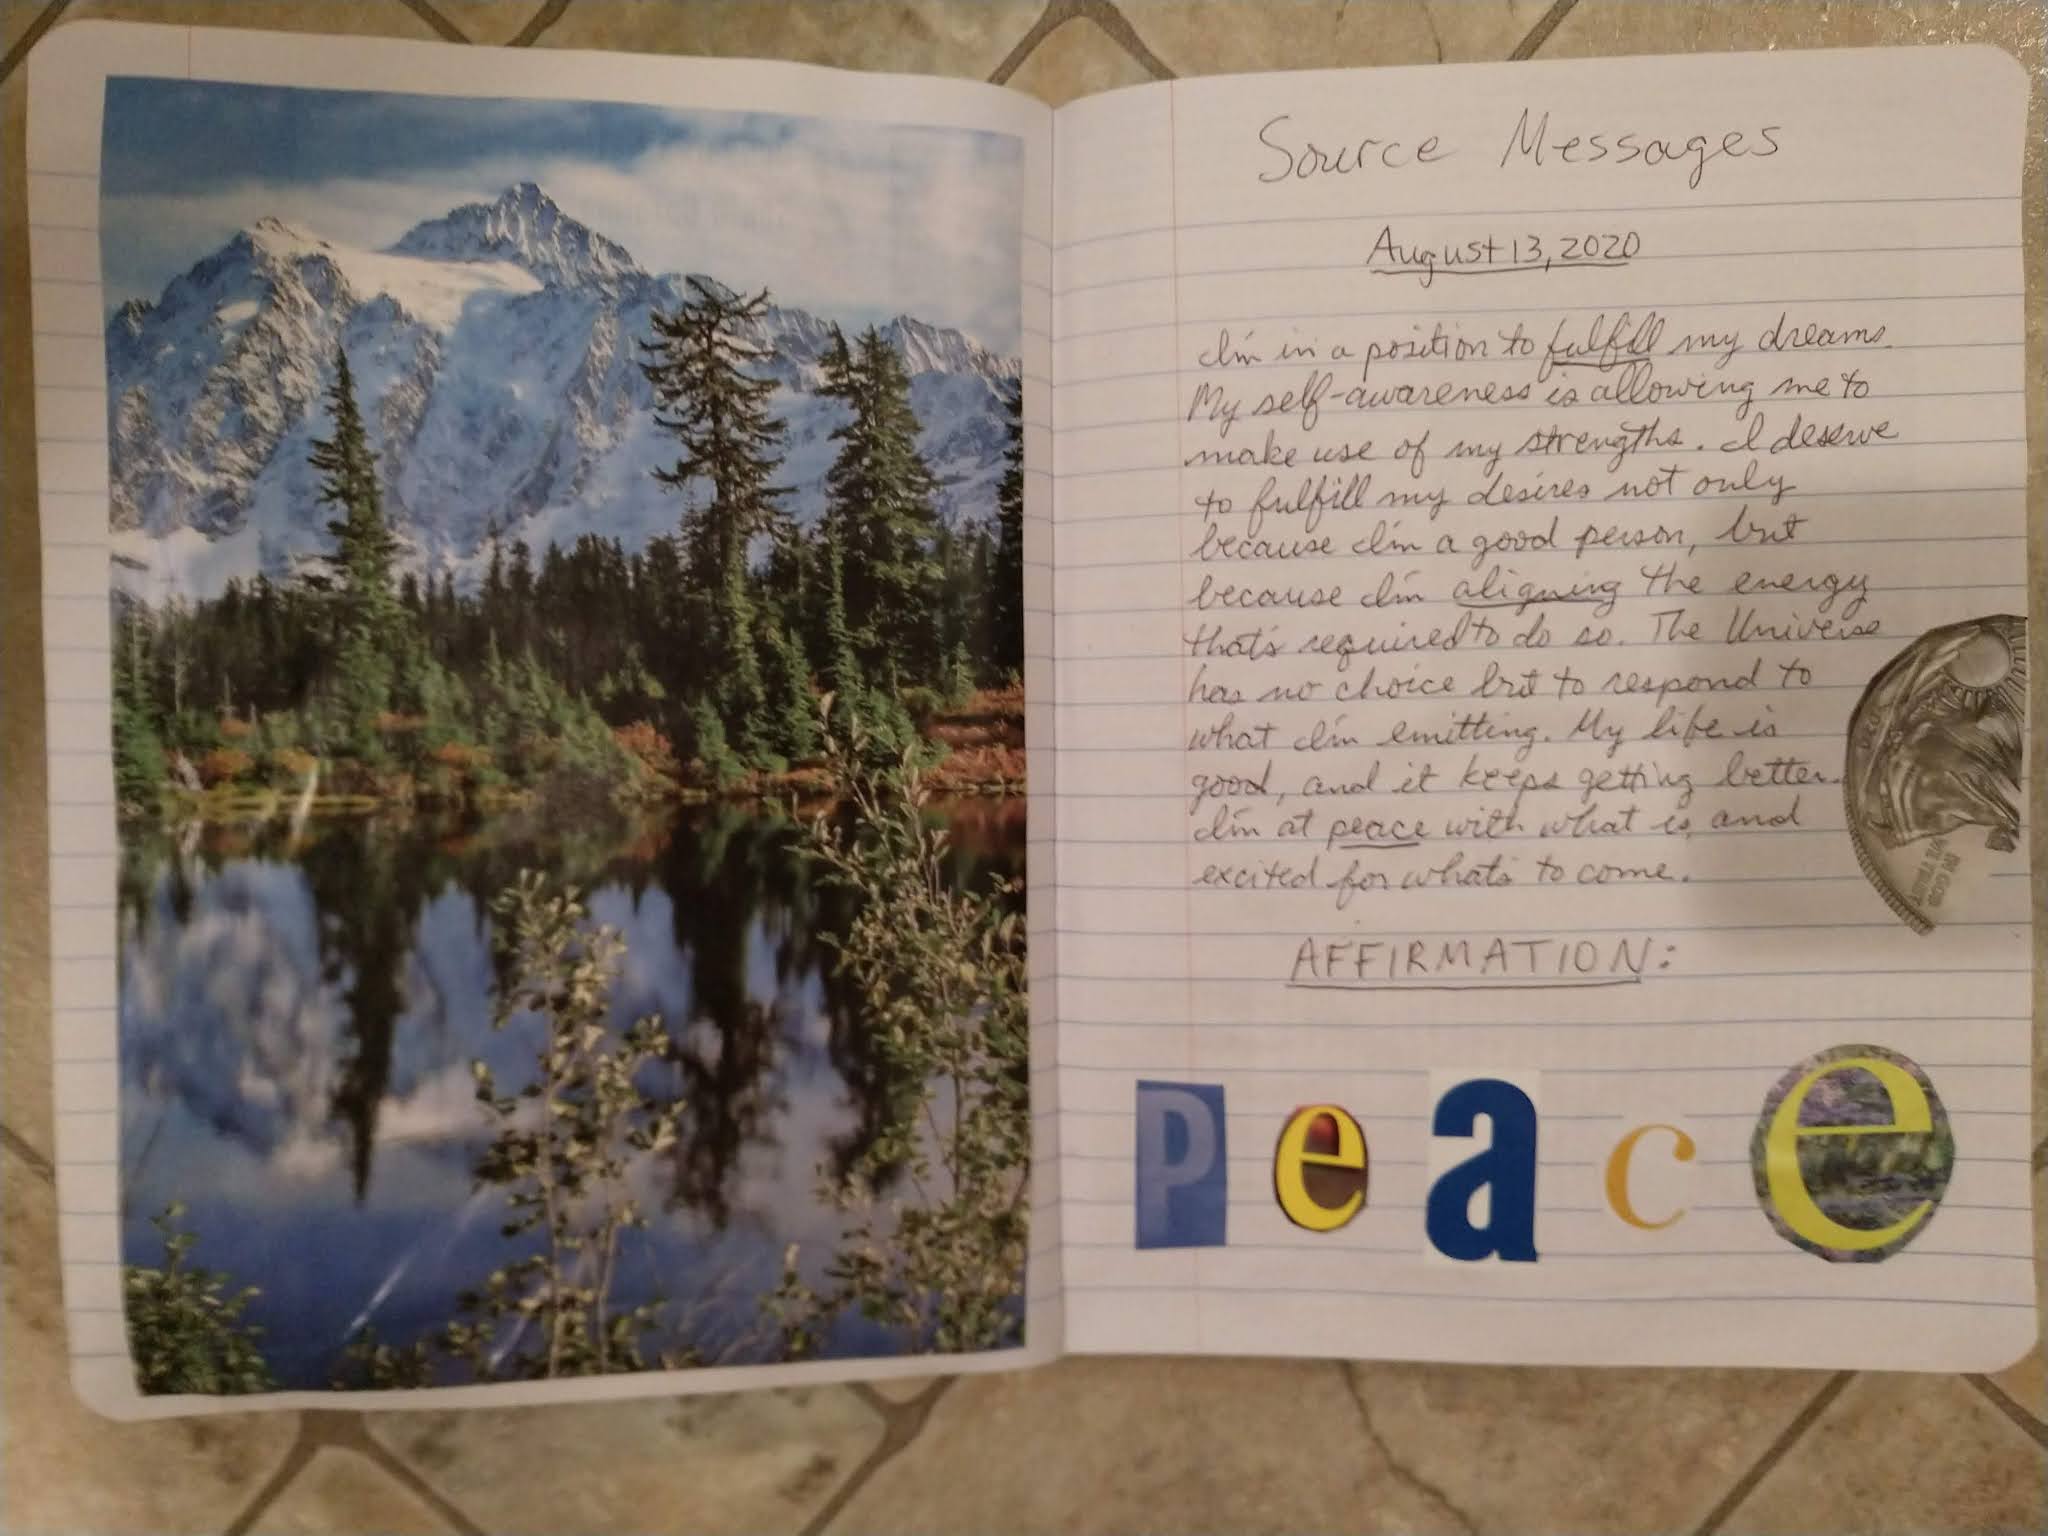 Source Messages
August 13, 2020
I'm in a position to fulfill my dreams.
My self-awareness is allowing me to
make use of my strengths. I deserve
to fulfill my desires not only
because I'm a good person, but
because I'm aligning the energy
that's required to do so. The Universe
has no choice but to respond to
what I'm emitting. My life is
good, and it keeps getting better.
I'm at peace with what is, and
excited for what's to come.
IN GOD
WE TRUST
AFFIRMATION:
Peace